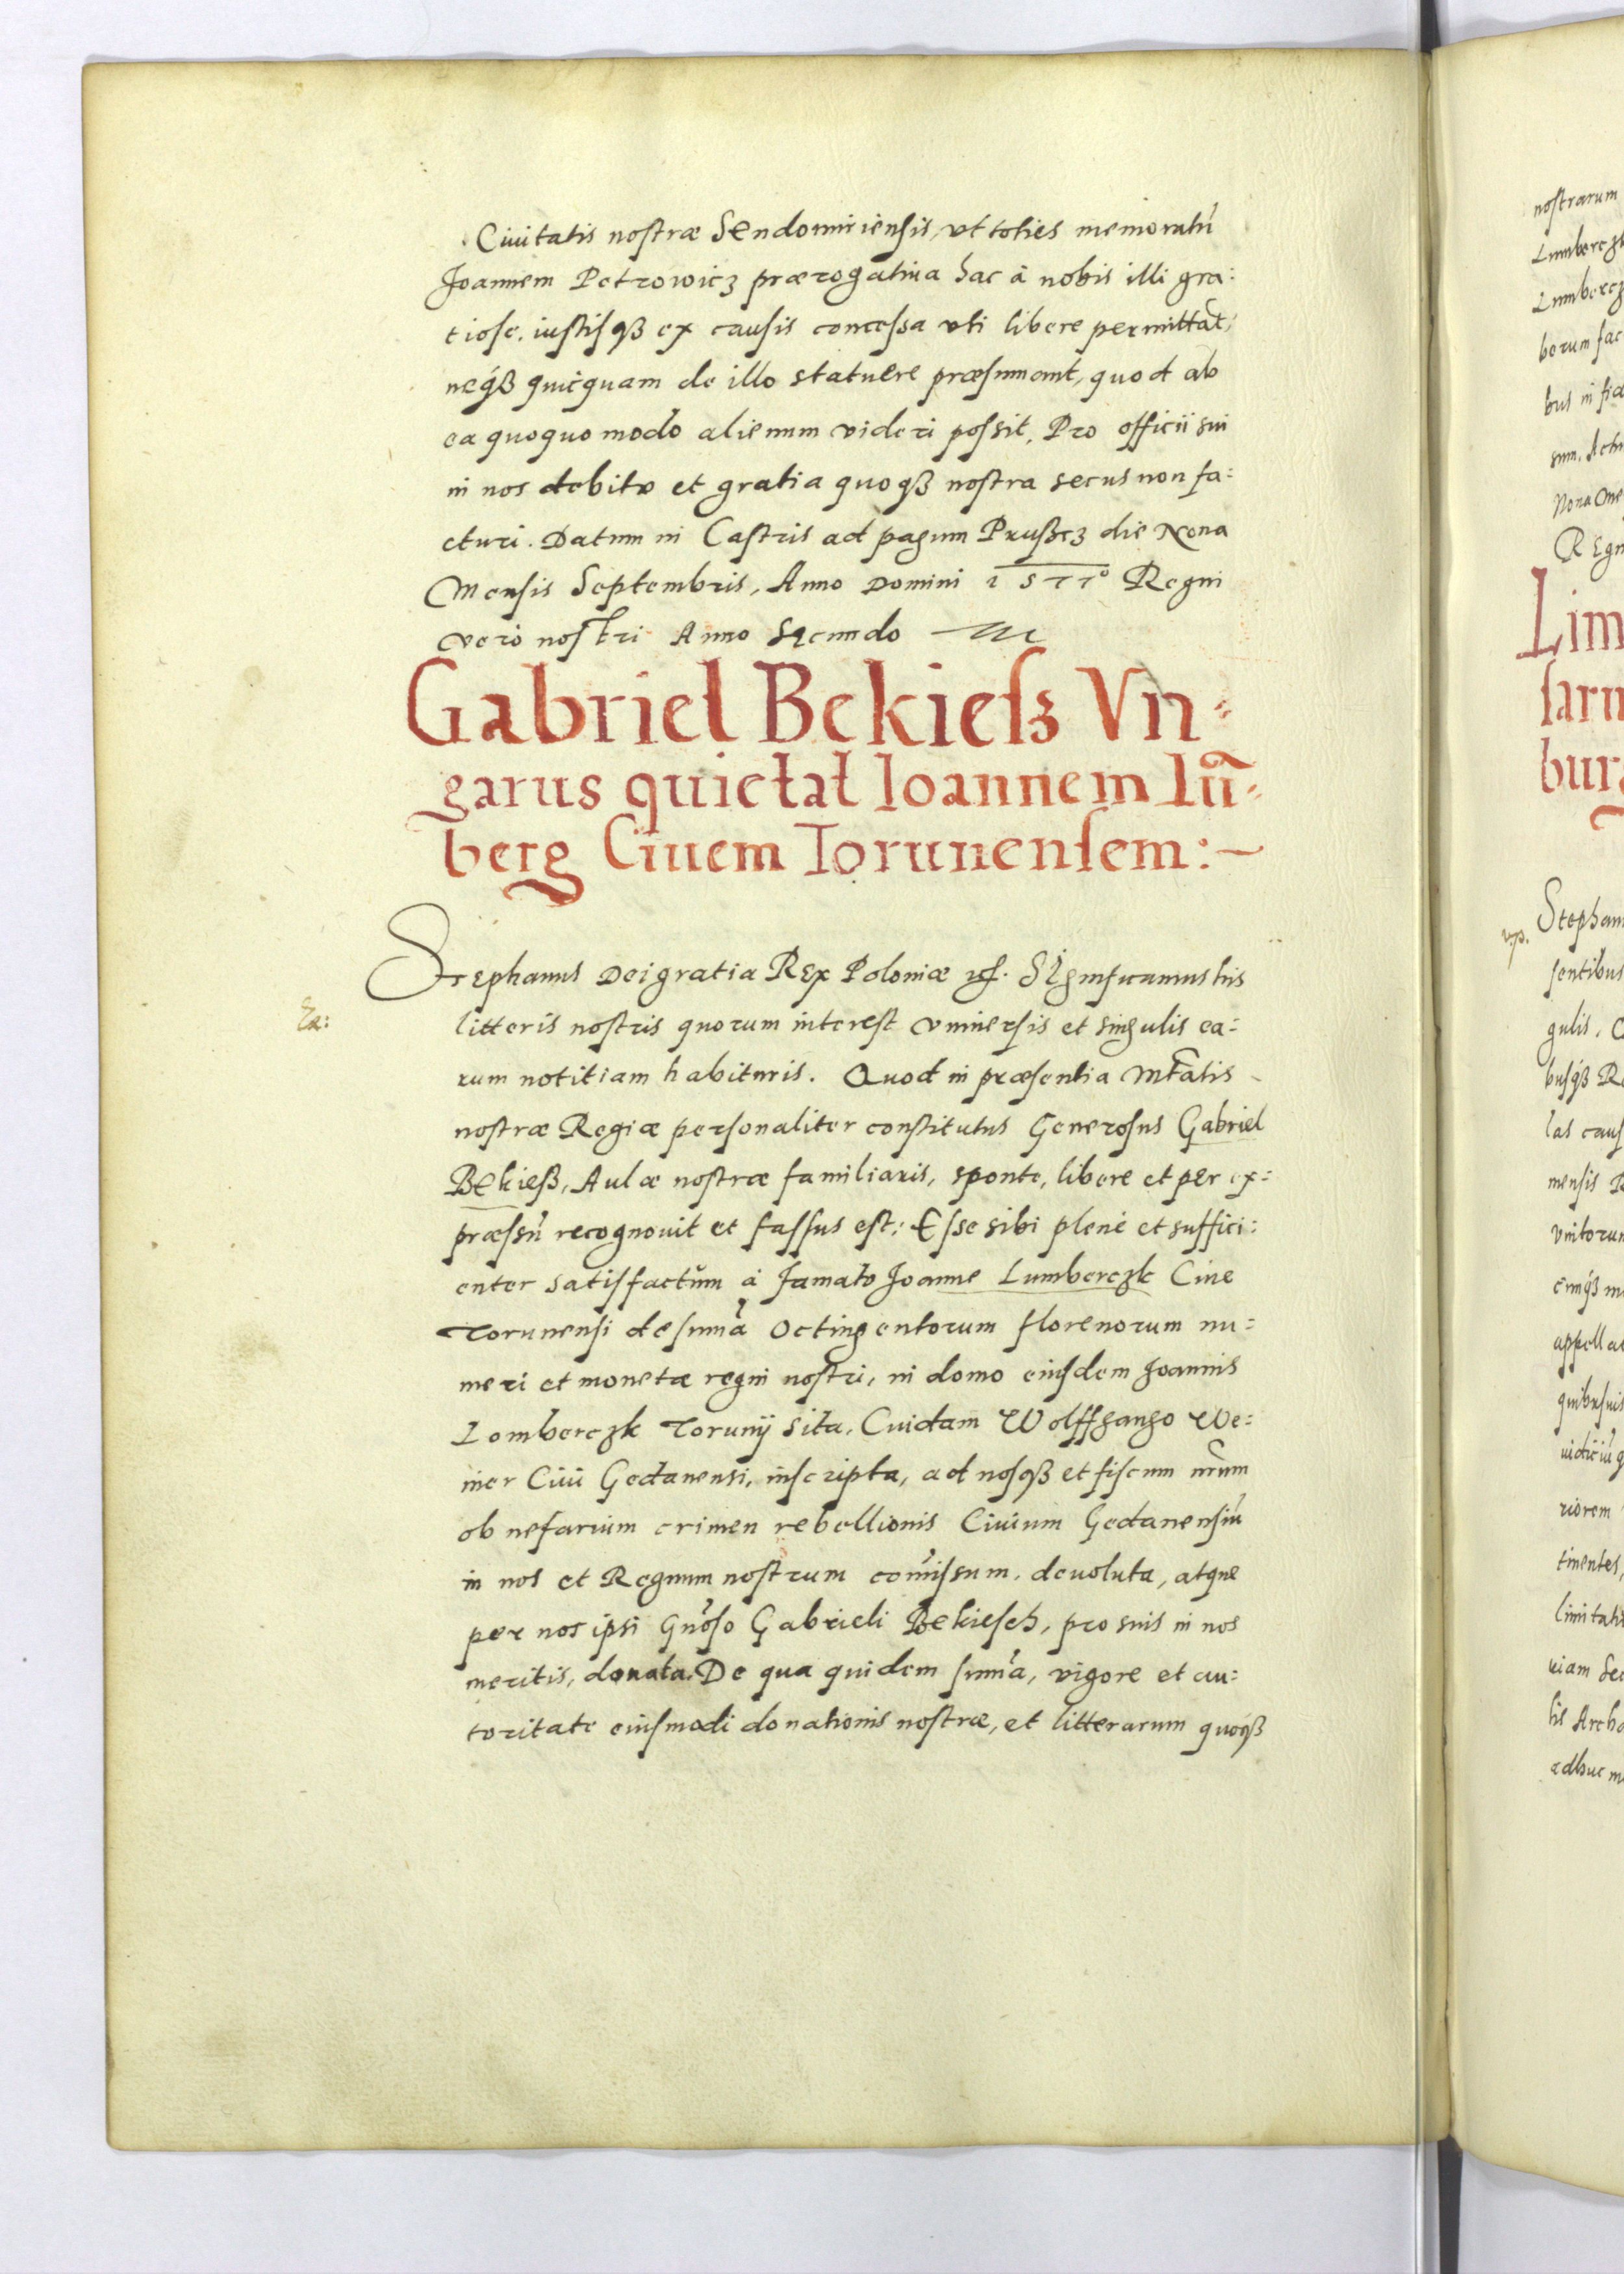 Ciuitatis nostræ Sendomiriensis, vt toties memoratũ
Joannem Petrowicz prærogatiua hac à nobis illi gra:
tiose, iustisqꝫ ex causis concessa vti libere permittãt,
neqꝫ quicquam de illo statuere præsumant, quod ab
ea quoquo modo alienum videri possit, Pro officii sui
in nos debito et gratia quoqꝫ nostra secus non fa:
cturi. Datum in Castris ad pagum Prußcz die Nona
Mensis Septembris, Anno Domini 1577° Regni
vero nostri Anno Secundo
Gabriel Bekiesz Vn:
garus quietat Ioannem Lũ:
berg Ciuem Torunensem:~
Stephanus Dei gratia Rex Poloniæ Significamus his
litteris nostris quorum interest vniuersis et singulis ea:
rum notitiam habituris. Quod in præsentia Mtãtis
nostræ Regiæ personaliter constitutus Generosus Gabriel
Bekieß, Aulæ nostræ familiaris, sponte, libere et per ex:
præssũ recognouit et fassus est: Esse sibi plenè et suffici:
enter satisfactum à famato Joanne Lumberczk Ciue
Torunensi de sum̃a Octingentorum florenorum nu:
meri et monetæ regni nostri, in domo eiusdem Joannis
Lomberczk Torunij sita, Cuidam Wolffgango We:
iner Ciui Gedanensi, inscripta, ad nosqꝫ et fiscum nr̃um
ob nefarium crimen rebellionis Ciuium Gedanensiũ
in nos et Regnum nostrum com̃issum, deuoluta, atque
per nos ipsi Gnõso Gabrieli Bekiesch, pro suis in nos
meritis, donata. De qua quidem sum̃a, vigore et au:
toritate eiusmodi donationis nostræ, et litterarum quoqꝫ
nostrarum
Lumberczk
bus in
Nona
Regn
Lim
burg
Stephan
sentibus
gulis.
las caus
mensis
vnitorum
quibusuis
riorem
tinentes,
uiam
adhuc